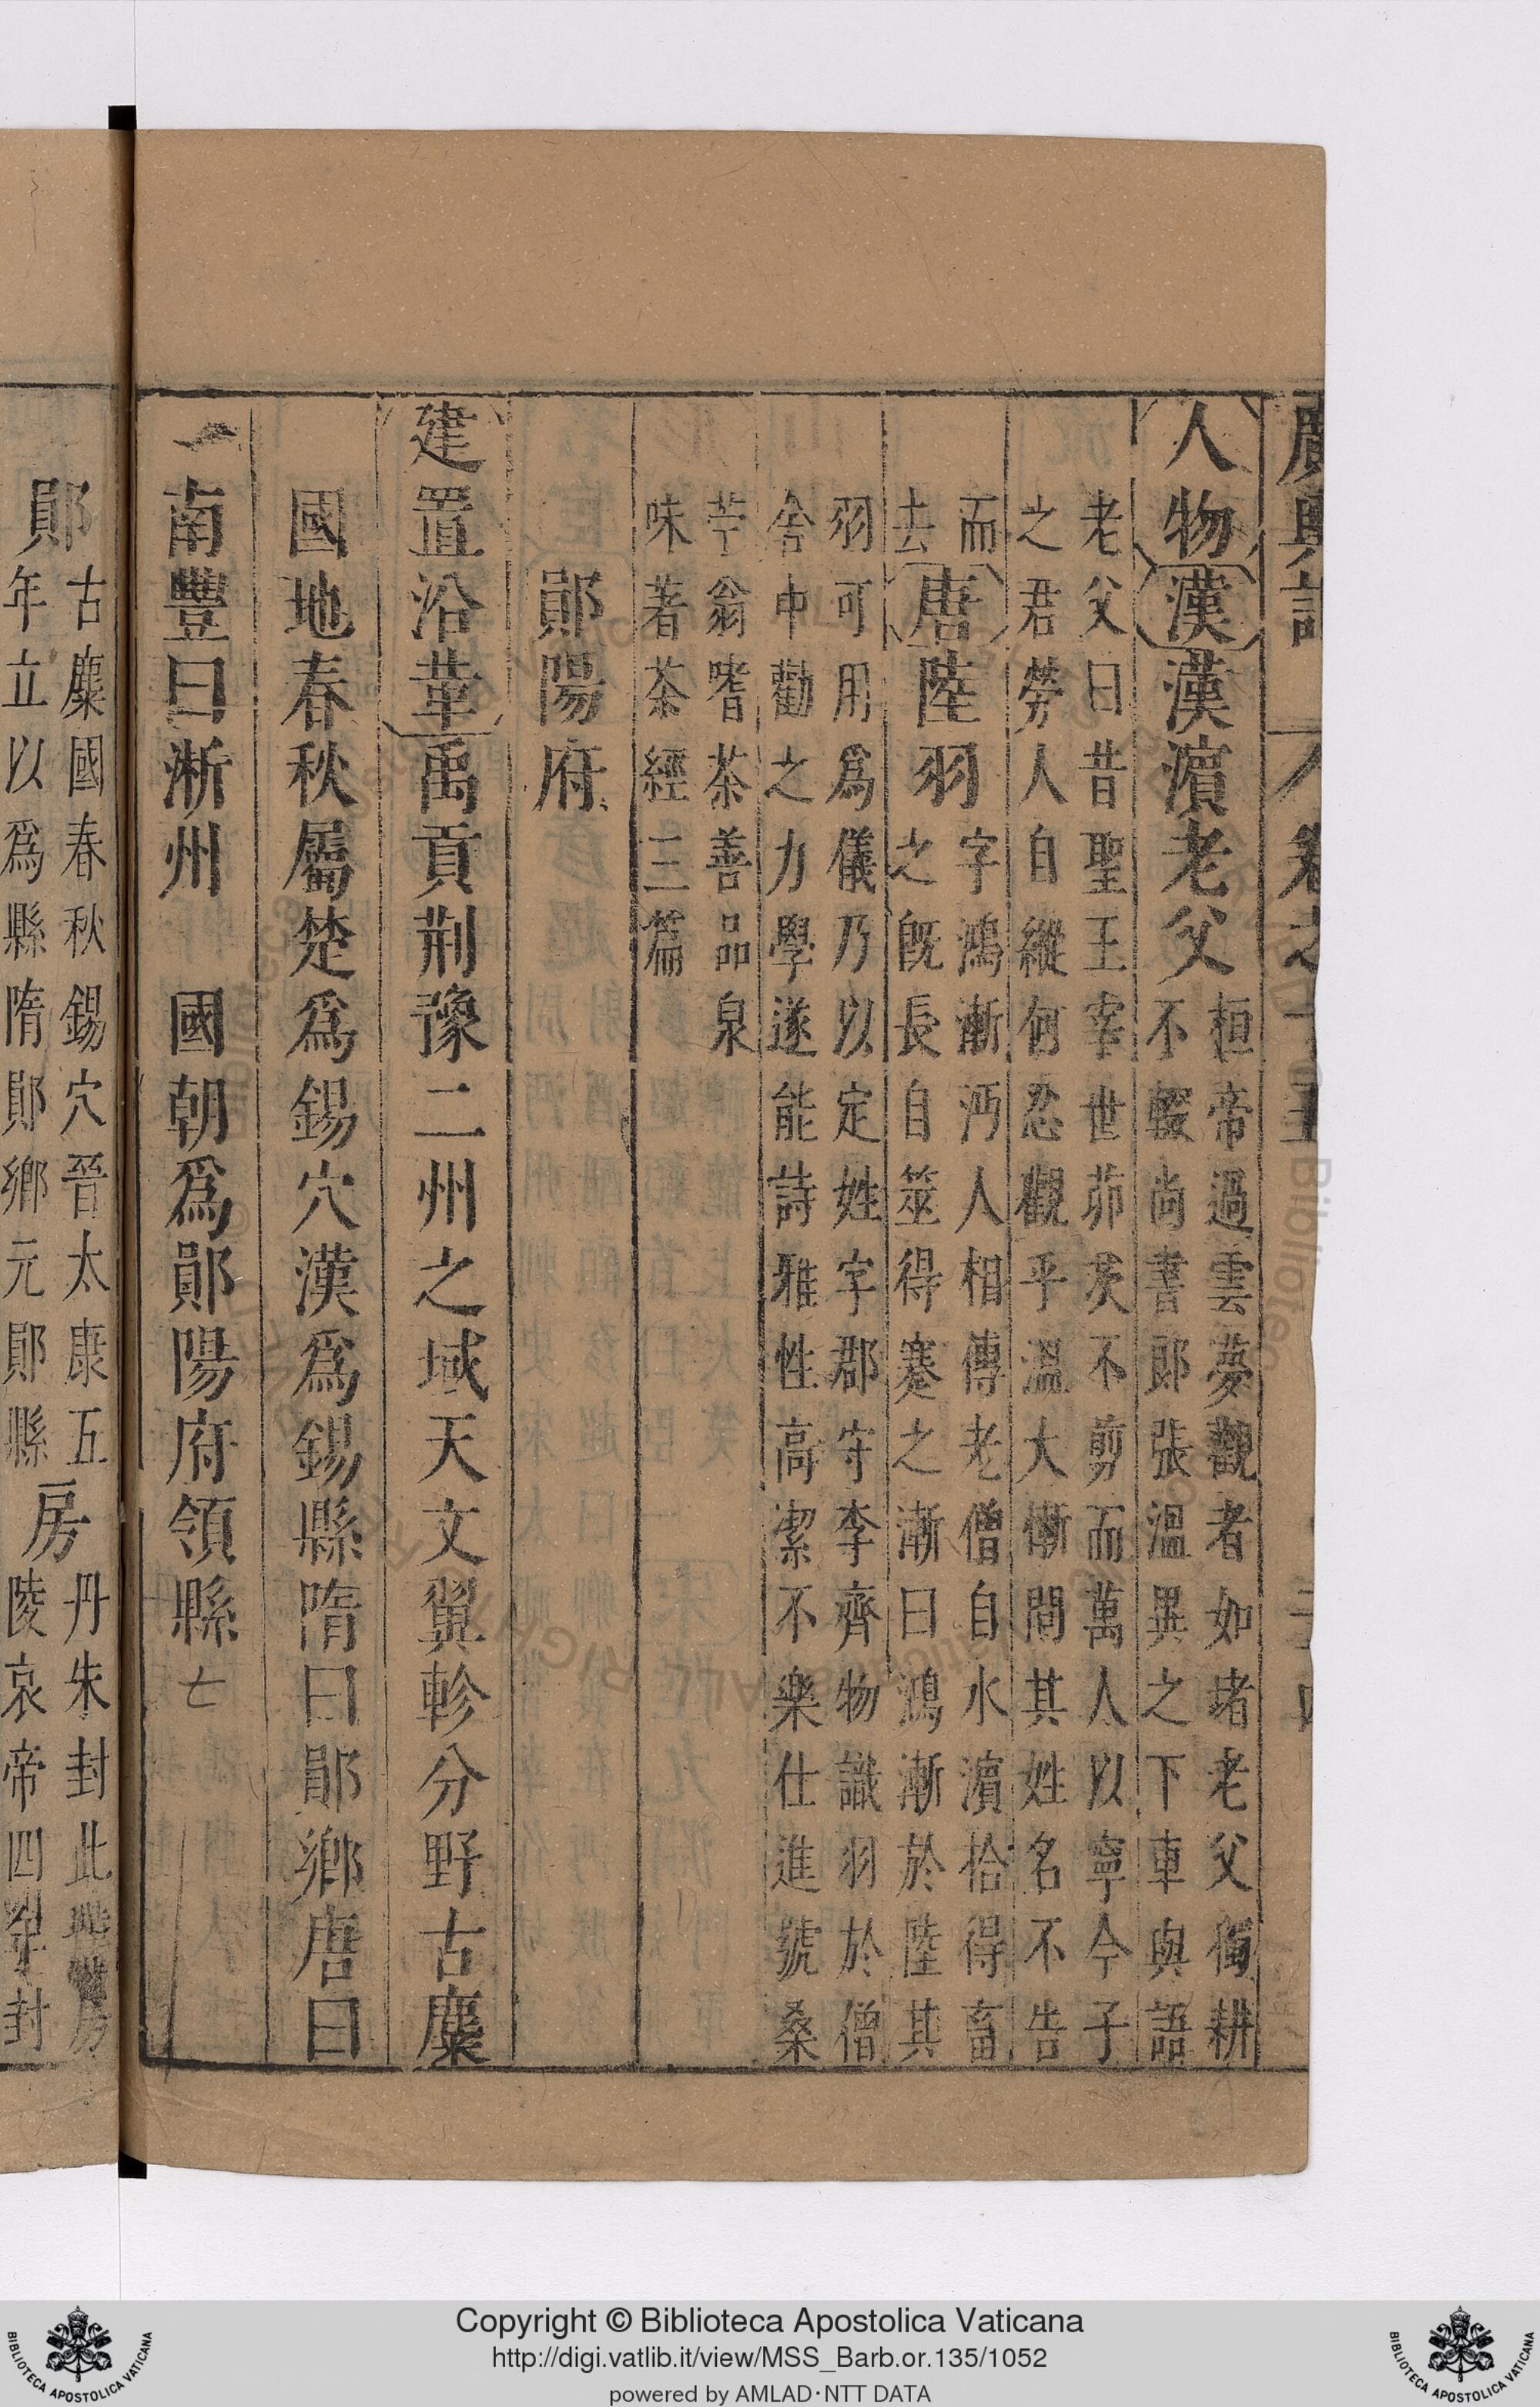 人物漢漢濱老父桓帝過雲夢觀者如堵老父獨耕
不輟尚書郎張溫異之下車與語
老父曰昔聖王宰世茆茨不剪而萬人以寧今子
之君勞人自縱何忍觀乎溫大慚問其姓名不告
而
去唐陸羽字鴻漸沔人相傳老僧自水濱拾得畜
之旣長自筮得蹇之漸曰鴻漸於陸其
羽可用爲儀乃以定姓字郡守李齊物識羽於僧
舍中勸之力學遂能詩雅性高潔不樂仕進號桑
苧翁嗜茶善品泉
味著茶經三篇
鄖陽府
建置沿革禹貢荆豫二州之域天文翼軫分野古麇
國地春秋屬楚爲錫穴漢爲錫縣隋曰鄖鄉唐曰
南豐曰淅州 國朝爲鄖陽府領縣七
鄖古麇國春秋錫穴晉太康五
年立以爲縣隋鄖鄉元鄖縣房丹朱封此
陵哀帝四年封
Copyright © Biblioteca Apostolica Vaticana
http://digi.vatlib.it/view/MSS_Barb.or.135/1052
powered by AMLAD·NTT DATA
BIBLIOTECA APOSTOLICA VATICANA
BIBLIOTECA APOSTOLICA VATICANA